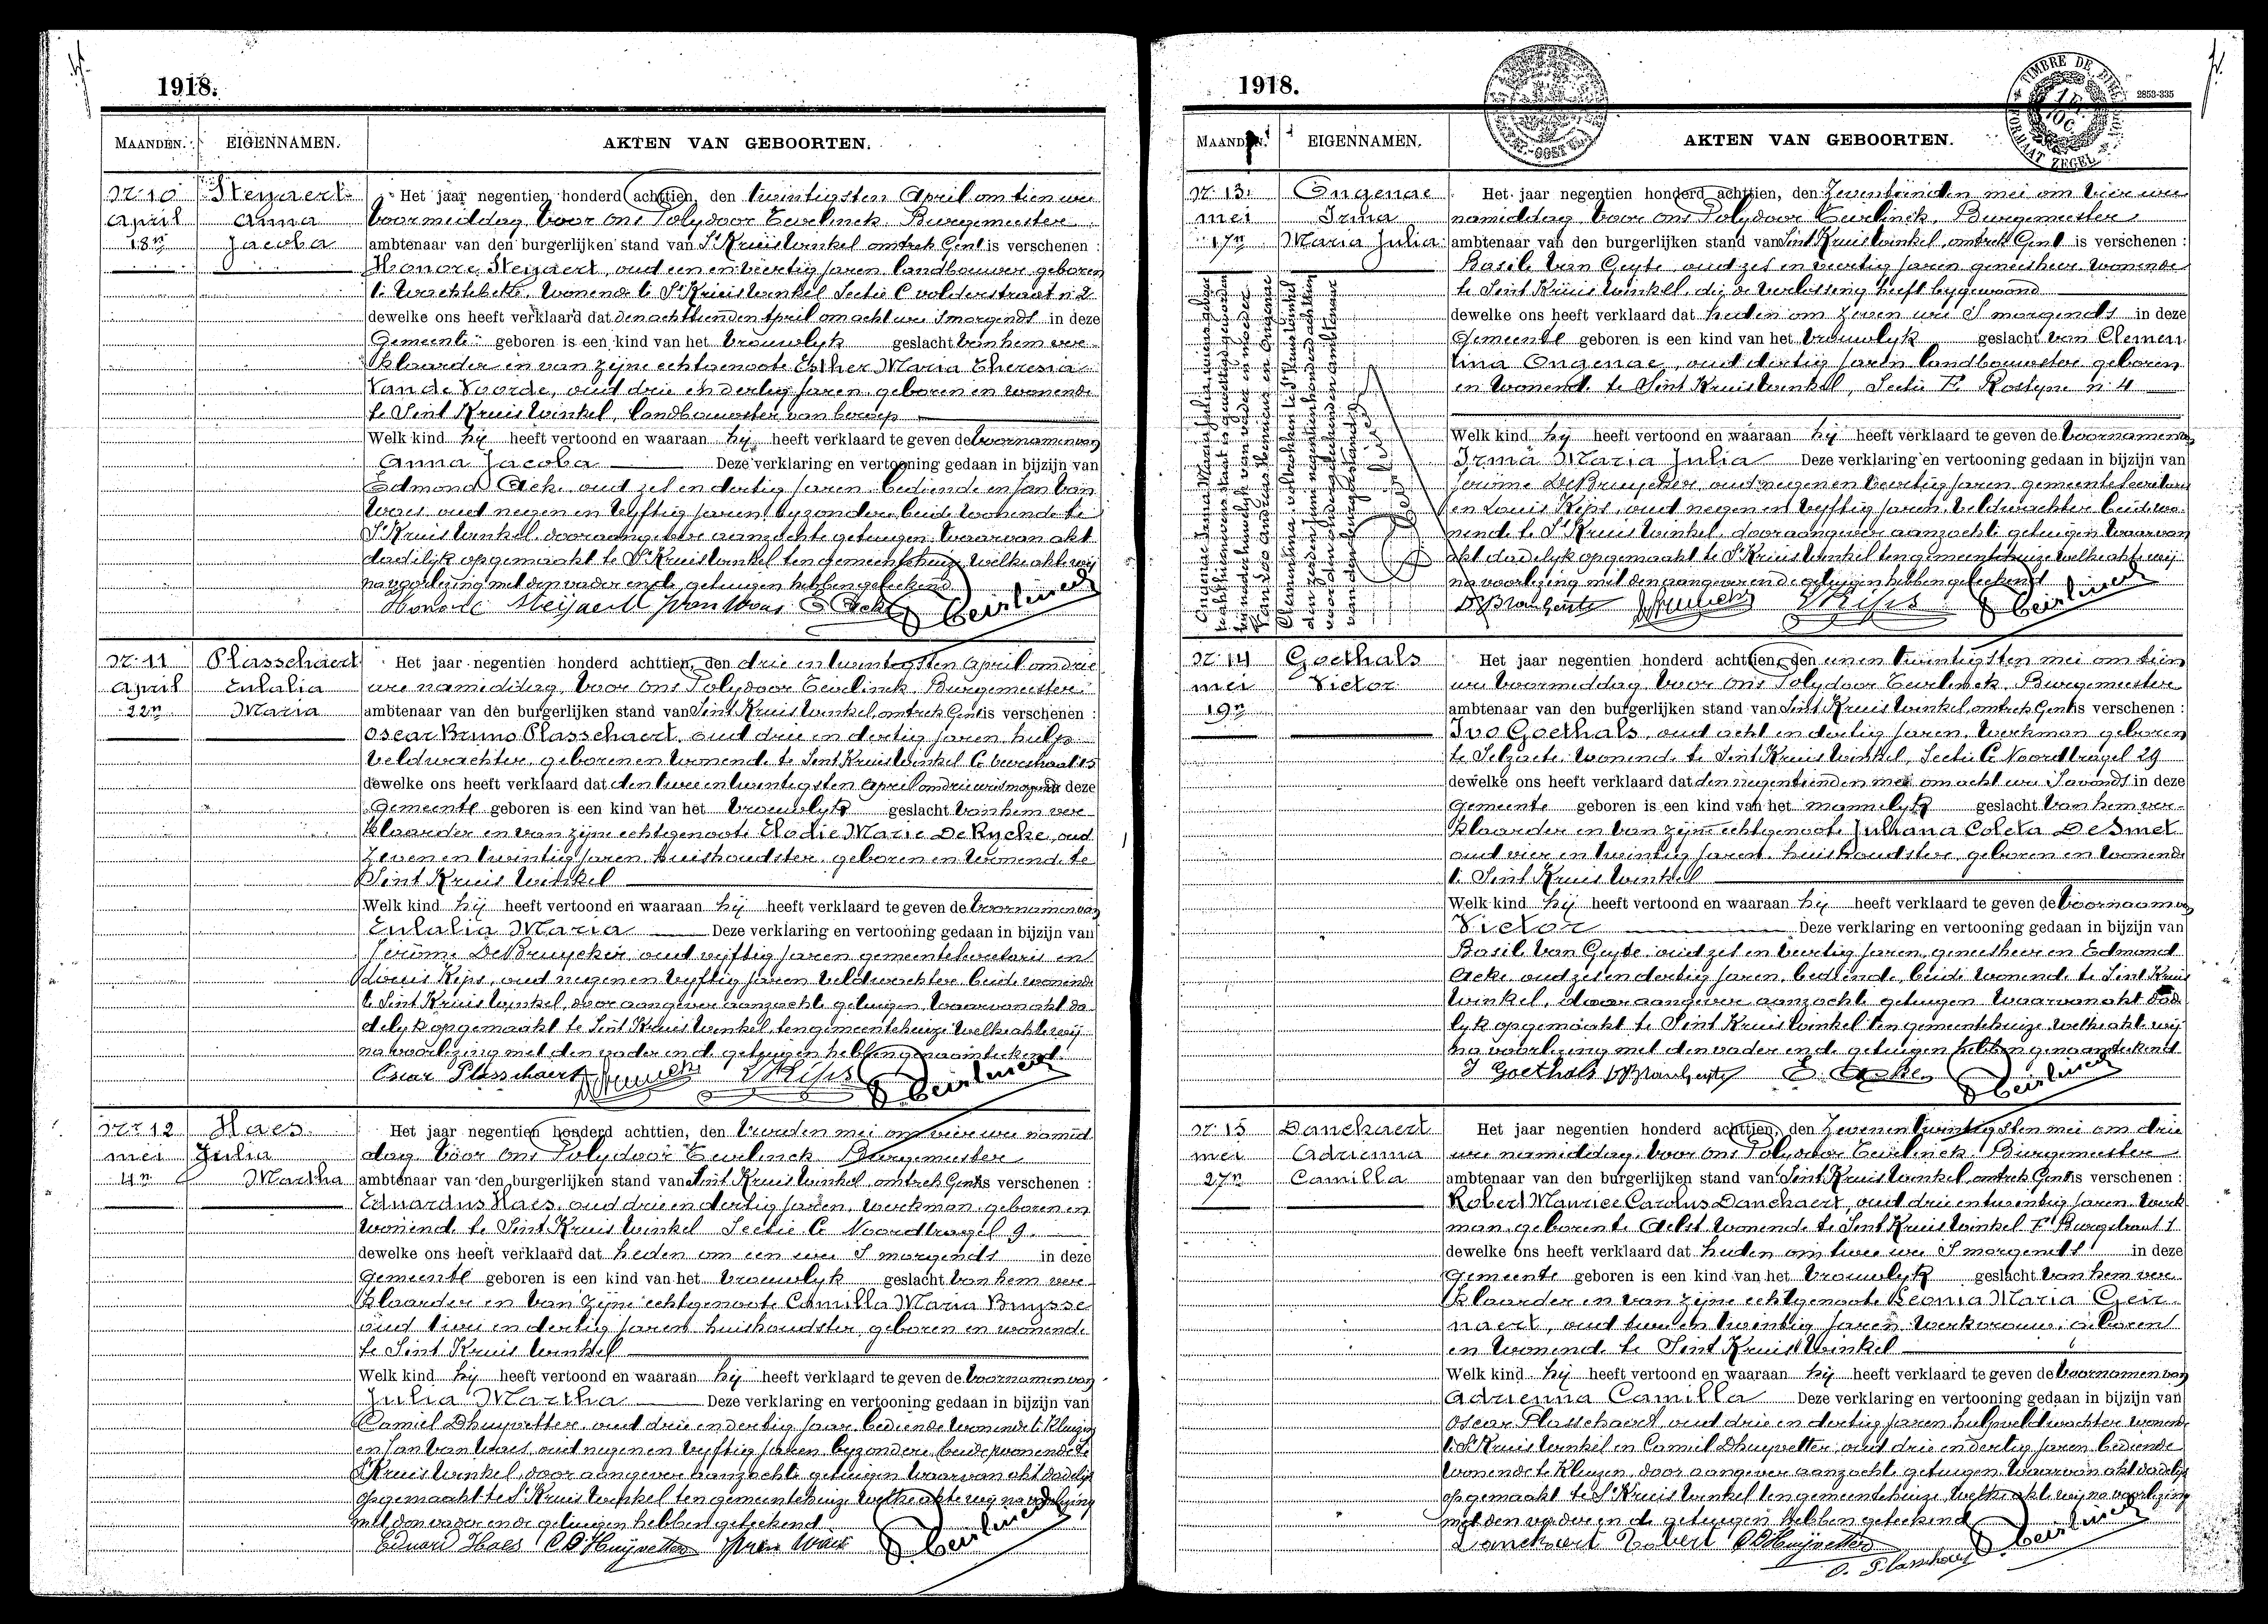 1918.
MAANDEN. EIGENNAMEN. AKTEN VAN GEBOORTEN.
Nr 10 Steyaert Het jaar negentien honderd achttien, den twintigsten April om tien ure
April Anna voormiddag, voor ons Polydoor Teirlinck, Burgemeester
18n Jacoba ambtenaar van den burgerlijken stand van St Kruis Winkel omtrek Gent is verschenen :
Honoré Steyaert, oud een en veertig jaren landbouwer geboren
te Wachtebeke, wonende te St Kruis Winkel Sectie C volderstraat n. 2
dewelke ons heeft verklaard dat den achttienden April om acht ure s'morgends in deze
Gemeente geboren is een kind van het vrouwlyk geslacht van hem ver-
klaarder en van zijne echtgenoote Esther Maria Theresia
Van de Voorde, oud drie en dertig jaren geboren en wonende
te Sint Kruis Winkel, landbouwster van beroep
Welk kind hij heeft vertoond en waaraan hij heeft verklaard te geven de voornamen van
Anna Jacoba Deze verklaring en vertooning gedaan in bijzijn van
Edmond Acke, oud zes en dertig jaren bediende en Jan Van
Waes oud negen en vyftig jaren byzondere beide wonende te
St Kruis Winkel, door aangever aanzochte getuigen. Waarvan akt
dadelijk opgemaakt te St Kruis Winkel ten gemeentehuize welke akte wij
na voorlezing met den vader en de getuigen hebben geteekend
Honoré Steijaert J van Waes E Acke P. Teirlinck
Nr 11 Plasschaert Het jaar negentien honderd achttien, den drie en twintigsten April om drie
April Eulalia ure namiddag, voor ons Polydoor Teirlinck, Burgemeester
22n Maria ambtenaar van den burgerlijken stand van Sint Kruis Winkel, omtrek Gent is verschenen :
Oscar Bruno Plasschaert, oud drie en dertig jaren hulp-
veldwachter, geboren en wonende te Sint Kruis Winkel C
dewelke ons heeft verklaard dat den twee en twintigsten April om drie ure s'morgends in deze
Gemeente geboren is een kind van het vrouwlyk geslacht van hem ver-
klaarder en van zijne echtgenoote Elodie Marie De Rycke, oud
zeven en twintig jaren, huishoudster, geboren en wonende te
Sint Kruis Winkel
Welk kind hij heeft vertoond en waaraan hij heeft verklaard te geven de voornamen van
Eulalia Maria Deze verklaring en vertooning gedaan in bijzijn van
Jerôme De Bruycker oud vijftig jaren gemeentesecretaris en
Louis Kips, oud negen en vyftig jaren veldwachter beide wonende
te Sint Kruis Winkel, door aangever aanzochte getuigen, Waarvan akt da-
delyk opgemaakt te Sint Kruis Winkel, ten gemeentehuize welke akte wij
na voorlezing met den vader en de getuigen hebben genaamteekend
Oscar Plasschaert L Kips P. Teirlinck
Nr 12 Haes Het jaar negentien honderd achttien, den vierden mei om vier ure namid
mei Julia dag voor ons Polydoor Teirlinck Burgemeester
4n Martha ambtenaar van den burgerlijken stand van Sint Kruis Winkel, omtrek Gent is verschenen :
Eduardus Haes, oud drie en dertig jaren, werkman, geboren en
wonende te Sint Kruis Winkel Sectie C Noordtragel 9.
dewelke ons heeft verklaard dat heden om een ure s'morgends in deze
Gemeente geboren is een kind van het vrouwlyk geslacht van hem ver-
klaarder en van zijne echtgenoote Camilla Maria Buysse
oud twee en dertig jaren huishoudster, geboren en wonende
te Sint Kruis Winkel
Welk kind hij heeft vertoond en waaraan hij heeft verklaard te geven de voornamen van
Julia Martha Deze verklaring en vertooning gedaan in bijzijn van
Camiel Dhuyvetter, oud drie en dertig jaar bediende wonende te Kluizen
en Jan Van Waes, oud negen en vyftig jaren byzondere, wonende te
St Kruis Winkel, door aangever aanzochte getuigen waarvan akt dadelijk
opgemaakt te St Kruis Winkel ten gemeentehuize welke akte wij na voorlezing
met den vader en de getuigen hebben geteekend
Eduard Haes C DHuijvetter J van Waes P. Teirlinck
1918.
TIMBRE DE
ZEGEL
2853-335
MAANDEN. EIGENNAMEN. AKTEN VAN GEBOORTEN.
Nr 13 Ongenae Het jaar negentien honderd achttien, den zeventienden mei om vier ure
mei Irma namiddag voor ons Polydoor Teirlinck, Burgemeester
17n Maria Julia ambtenaar van den burgerlijken stand van Sint Kruis Winkel, omtrek Gent is verschenen :
Basile Van Geyte, oud zes en veertig jaren geneesheer wonende
te Sint Kruis Winkel, die de verlossing heeft bygewoond
dewelke ons heeft verklaard dat heden om zeven ure s'morgends in deze
Gemeente geboren is een kind van het vrouwlyk geslacht van Clemen
tina Ongenae, oud dertig jaren landbouwster geboren
en wonende te Sint Kruis Winkel, Sectie F Rostyne n. 4
Welk kind hij heeft vertoond en waaraan hij heeft verklaard te geven de voornamen van
Irma Maria Julia Deze verklaring en vertooning gedaan in bijzijn van
Jerôme De Bruycker, oud negen en veertig jaren gemeentesecretaris
en Louis Kips, oud negen en vyftig jaren, veldwachter beide wo-
nende te St Kruis Winkel, door aangever aanzochte getuigen Waarvan
akt dadelyk opgemaakt te St Kruis Winkel ten gemeentehuize welke akte wij
na voorlezing met den aangever en de getuigen hebben geteekend
Dr B Van Geyte L Kips P. Teirlinck
Ongenae Irma Maria Julia
bij nader huwelijk van vader en moeder
Van Loo Andreas Henricus en Ongenae
Clementina, voltrokken te St Kruis Winkel
den negentienhonderd achttien
voor den ondergeteekenden ambtenaar
van den burgerstand
Teirlinck
Nr 14 Goethals Het jaar negentien honderd achttien, den eenen twintigsten mei om tien
mei Victor ure voormiddag, voor ons Polydoor Teirlinck, Burgemeester
19n ambtenaar van den burgerlijken stand van Sint Kruis Winkel, omtrek Gent is verschenen :
Ivo Goethals, oud acht en dertig jaren, werkman geboren
te Selzaete wonende te Sint Kruis Winkel, Sectie C Noordtragel 29
dewelke ons heeft verklaard dat den negentienden mei om acht ure s'avonds in deze
Gemeente geboren is een kind van het mannelyk geslacht van hem ver-
klaarder en van zijne echtgenoote Juliana Coleta De Smet
oud vier en twintig jaren, huishoudster, geboren en wonende
te Sint Kruis Winkel
Welk kind hij heeft vertoond en waaraan hij heeft verklaard te geven de voornaam van
Victor Deze verklaring en vertooning gedaan in bijzijn van
Basile Van Geyte, oud zes en veertig jaren, geneesheer en Edmond
Acke, oud zes en dertig jaren, bediende, beide wonende te Sint Kruis
Winkel, door aangever aanzochte getuigen Waarvan akt dade
lyk opgemaakt te Sint Kruis Winkel ten gemeentehuize welke akte wij
na voorlezing met den vader en de getuigen hebben genaamteekend
I Goethals Dr B Van Geyte E. Acke P. Teirlinck
Nr 15 Danckaert Het jaar negentien honderd achttien, den zeven en twintigsten mei om drie
mei Adrienna ure namiddag, voor ons Polydoor Teirlinck, Burgemeester
27n Camilla ambtenaar van den burgerlijken stand van Sint Kruis Winkel, omtrek Gent is verschenen :
Robert Maurice Carolus Danckaert, oud drie en twintig jaren, werk
man, geboren te Aelst wonende te Sint Kruis Winkel F Burgstraat 1
dewelke ons heeft verklaard dat heden om twee ure s'morgends in deze
Gemeente geboren is een kind van het vrouwlyk geslacht van hem ver-
klaarder en van zijne echtgenoote Leonia Maria Geir-
naert, oud twee en twintig jaren werkvrouw, geboren
en wonende te Sint Kruis Winkel
Welk kind hij heeft vertoond en waaraan hij heeft verklaard te geven de voornamen van
Adrienna Camilla Deze verklaring en vertooning gedaan in bijzijn van
Oscar Plasschaert, oud drie en dertig jaren hulpveldwachter wonende
te St Kruis Winkel en Camiel Dhuyvetter, oud drie en dertig jaren bediende
wonende te Kluizen, door aangever aanzochte getuigen. Waarvan akt dadelijk
opgemaakt te St Kruis Winkel ten gemeentehuize, welke akte wij na voorlezing
met den vader en de getuigen hebben geteekend
Danckaert Robert C DHuijvetter P. Teirlinck
O. Plasschaert